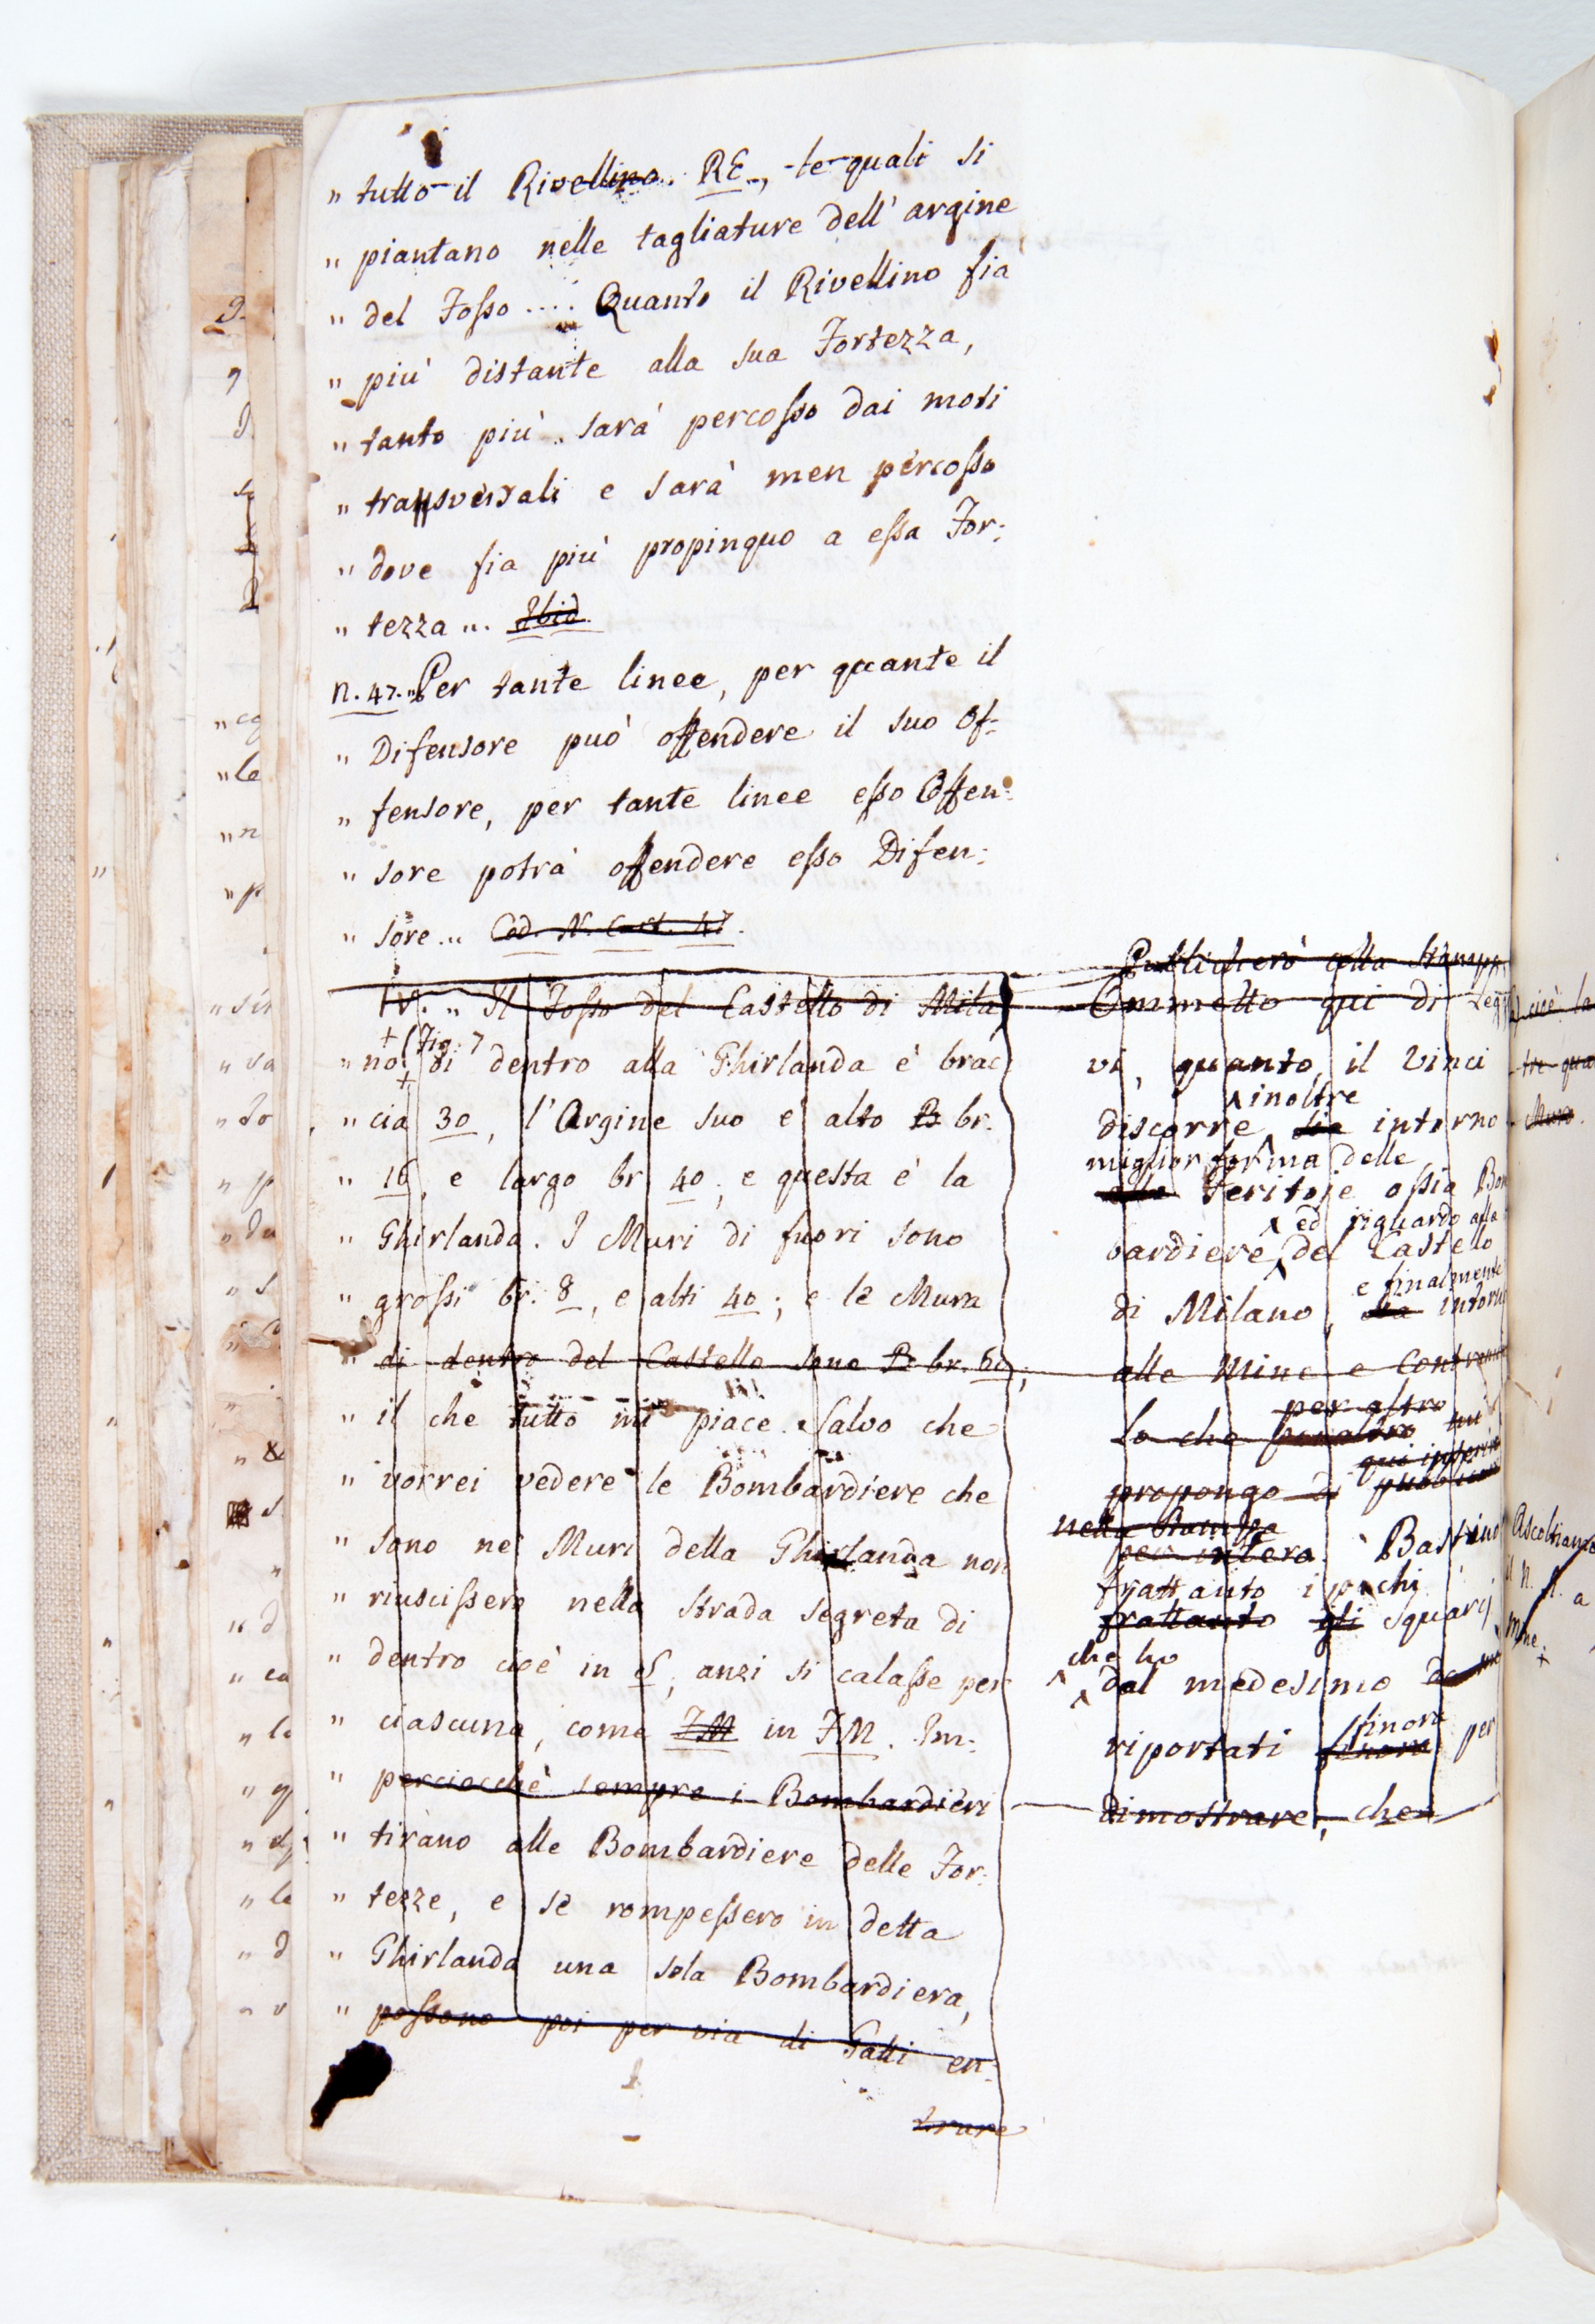 " tutto il Rivellino. RE, le quali si
" piantano nelle tagliature dell' argine
" del Fosso .... Quanto il Rivellino fia
" più distante alla sua Fortezza,
" tanto più sarà percosso dai moti
" transversali e sarà men percosso
" dove fia più propinquo a essa For:
" tezza ... Ibid.
n. 47. " Per tante linee, per quante il
" Difensore può offendere il suo Of:
" fensore, per tante linee esso Offen:
" sore potrà offendere esso Difen:
" sore ... Cod. N. Cart. 47.
IV. " Il Fosso del Castello di Mila
+ (Fig. 7
" no di dentro alla Ghirlanda è brac
" cia 30, l'Argine suo e' alto B br.
" 16, e largo br 40; e questa è la
" Ghirlanda. I Muri di fuori sono
" grossi br. 8, e alti 40; e le Mura
" di dentro del Castello sono B br. 60;
" il che tutto mi piace. Salvo che
" vorrei vedere le Bombardiere che
" sono ne' Muri della Ghirlanda non
" riuscissero nella strada segreta di
" dentro cioè in S, anzi si calasse per
" ciascuna, come IM in FM. Im:
" perciocchè sempre i Bombardieri
" tirano alle Bombardiere delle For:
" tezze, e se rompessero in detta
" Ghirlanda una sola Bombardiera,
" possono poi per via di Gatti en:
trare
Publicherò colla stampa
Ommetto qui di
vi, quanto il Vinci
inoltre
discorre intorno
miglior forma delle
alle feritoje ossia Bom
ed riguardo alla
bardiere del Castello
e finalmente
di Milano, intorno
alle Mine e Contram
per altro
Lo che peraltro mi
qui inserire
propongo di pubblicare
nella stampa
per intero. Bastino
frattanto i pochi
frattanto gli squarcj
che ho
dal medesimo da me
finora
riportati finora per
dimostrare, che
cioè la
tre qua
Muro.
Ascoltiamo
il N. a